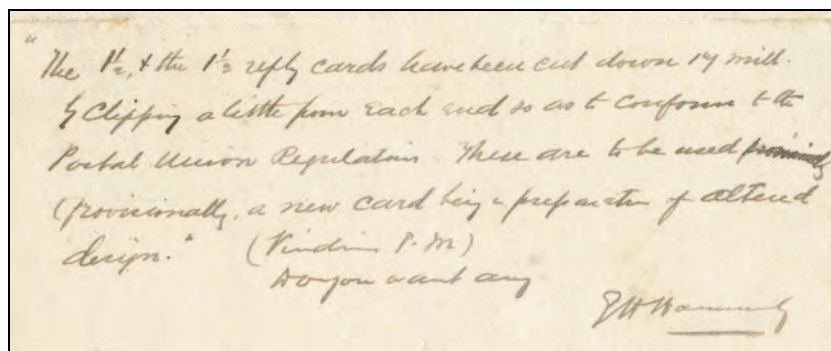 "The 1½, & the 1½ reply cards have been cut down 17 mill.
by clipping a little from each end so as to conform to the
Postal Union Regulation These are to be used
(provisionally, a new card being in preparation of altered
design." ( P. M)
Do you want any